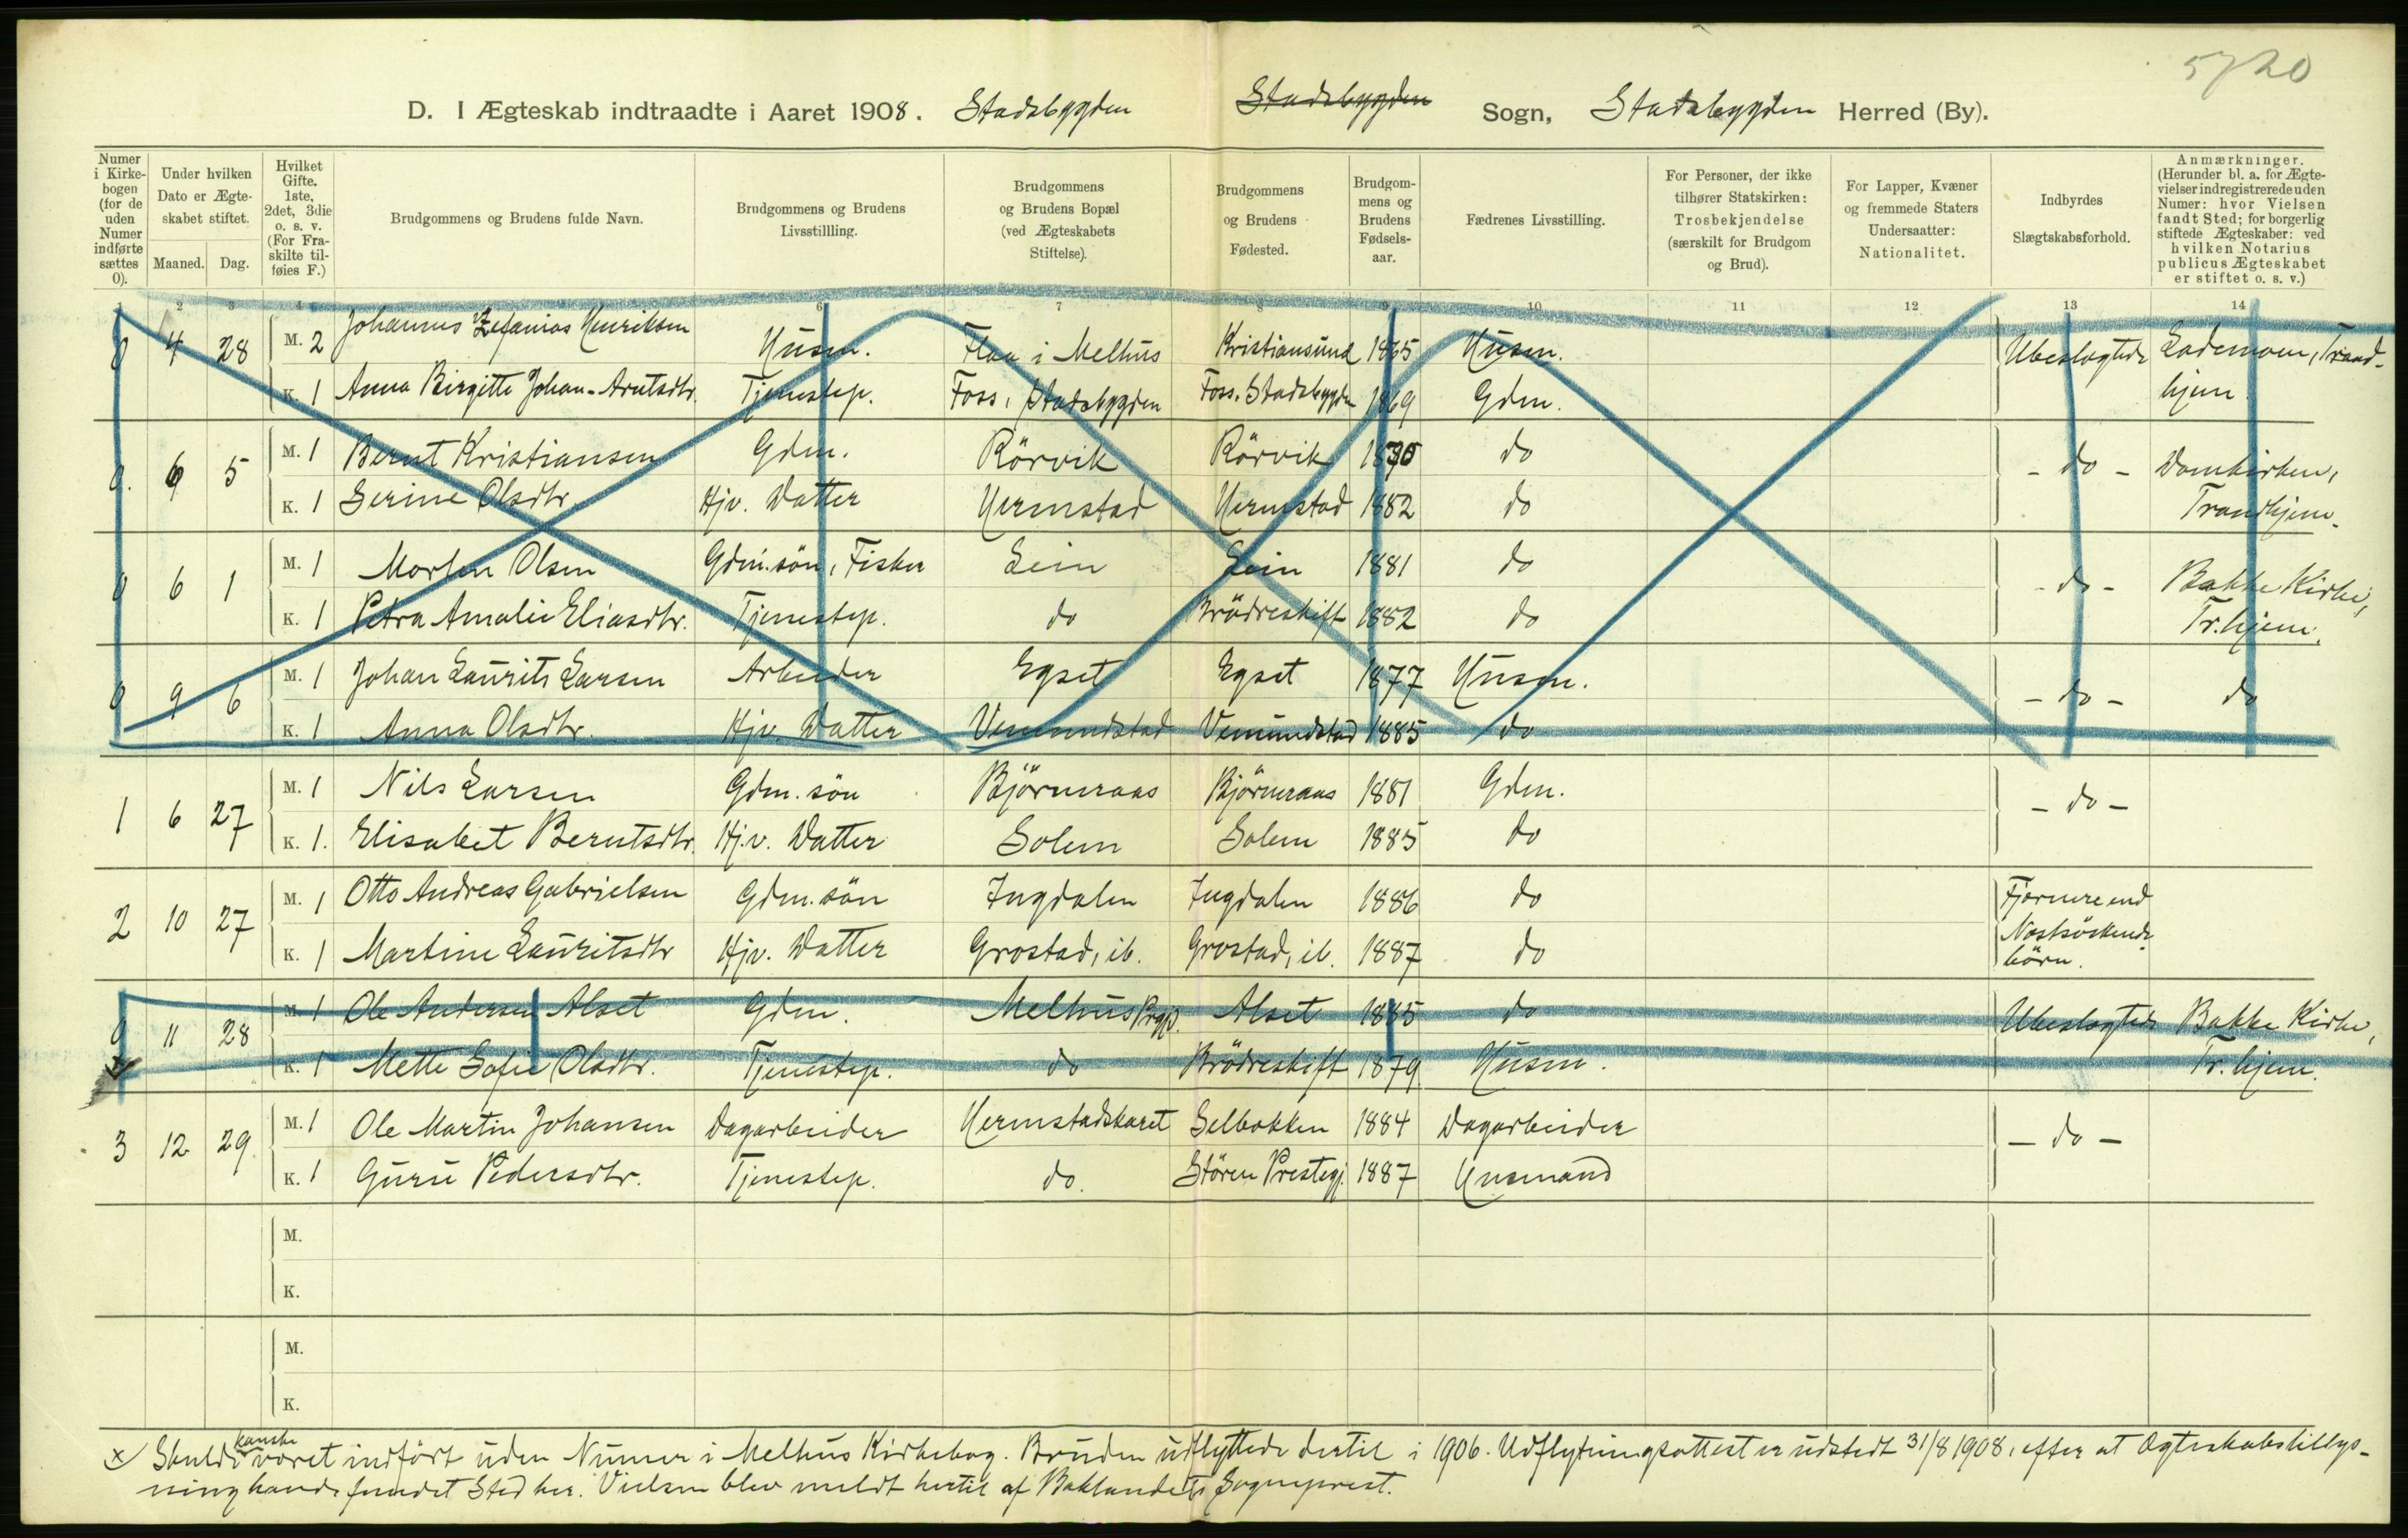 5720
D. I Ægteskab indtraadte i Aaret 1908. Stadsbygden Stadsbygden Sogn, Stadsbygden Herred (By).
Numer i Kirkebogen (for de uden Numer indførte sættes 0).
Under hvilken Dato er Ægteskabet stiftet.
Maaned. Dag.
Hvilket Gifte. 1ste, 2det, 3die o. s. v. (For Fraskilte tilføies F.)
Brudgommens og Brudens fulde Navn.
Brudgommens og Brudens Livsstillling.
Brudgommens og Brudens Bopæl (ved Ægteskabets Stiftelse).
Brudgommens og Brudens Fødested.
Brudgommens og Brudens Fødselsaar.
Fædrenes Livsstilling.
For Personer, der ikke tilhører Statskirken: Trosbekjendelse (særskilt for Brudgom og Brud).
For Lapper, Kvæner og fremmede Staters Undersaatter: Nationalitet.
Indbyrdes Slægtskabsforhold.
Anmærkninger. (Herunder bl. a. for Ægtevielser indregistrerede uden Numer: hvor Vielsen fandt Sted; for borgerlig stiftede Ægteskaber: ved hvilken Notarius publicus Ægteskabet er stiftet o. s. v.)
1 2 3 4 6 7 8 9 10 11 12 13 14
0 4 28 M. 2 Johannes Zefanias Henriksen Husm. Flaa i Melhus Kristiansund 1865 Husm. Ubeslægtede Lademoen, Trond-
K. 1 Anna Birgitte Johan-Arntsdtr. Tjenestep. Foss, Stadsbygden Foss, Stadsbygden 1869 Gdm. hjem
0. 6 5 M. 1 Bernt Kristiansen Gdm. Rörvik Rörvik do - do - Domkirken,
K. 1 Serine Olsdtr. Hjv. Datter Hermstad Hermstad 1882 do Trondhjem.
0 6 1 M. 1 Morten Olsen Gdm.sön, Fisker Lein Lein 1881 do - do - Bakke Kirke,
K. 1 Petra Amalie Eliasdtr. Tjenestep. do Brödreskift 1882 do Tr.hjem.
0 9 6 M. 1 Johan Laurits Larsen Arbeider Egset Egset 1877 Husm. - do - do
K. 1 Anna Olsdtr. Hjv. Datter Vemundstad Vemundstad 1885 do
1 6 27 M. 1 Nils Larsen Gdm. sön Björneraas Björneraas 1881 Gdm. - do -
K. 1. Elisabet Berntsdtr. Hjv. Datter Solem Solem 1885 do
2 10 27 M. 1 Otto Andreas Gabrielsen Gdm. sön Ingdalen Ingdalen 1886 do Fjernere end
K. 1 Martine Lauritsdtr Hjv. Datter Grostad, ib. Grostad, ib. 1887 do Næstsöskende-
börn.
0 11 28 M. 1 Ole Andersen Alset Gdm. Melhus Prgj. Alset 1885 do Ubeslægtede Bakke Kirke,
K. 1 Mette Sofie Olsdtr. Tjenestep. do Brödreskift 1879 Husm. Tr.hjem.
3 12 29 M. 1 Ole Martin Johansen Dagarbeider Hermstadskaret Selbekken 1884 Dagarbeider - do -
K. 1 Guru Pedersdtr. Tjenestep. do. Stören Prestegj. 1887 Husmand
M.
K.
M.
K.
x Skulde kanske været indfört uden Numer i Melhus Kirkebog. Bruden udflyttede dertil i 1906. Udflytningsattest er udstedt 31/8 1908, efter at Ægteskabslillys-
ning havde fundet Sted her. Vielsen blev meldt hertil af Baklandets Sogneprest.